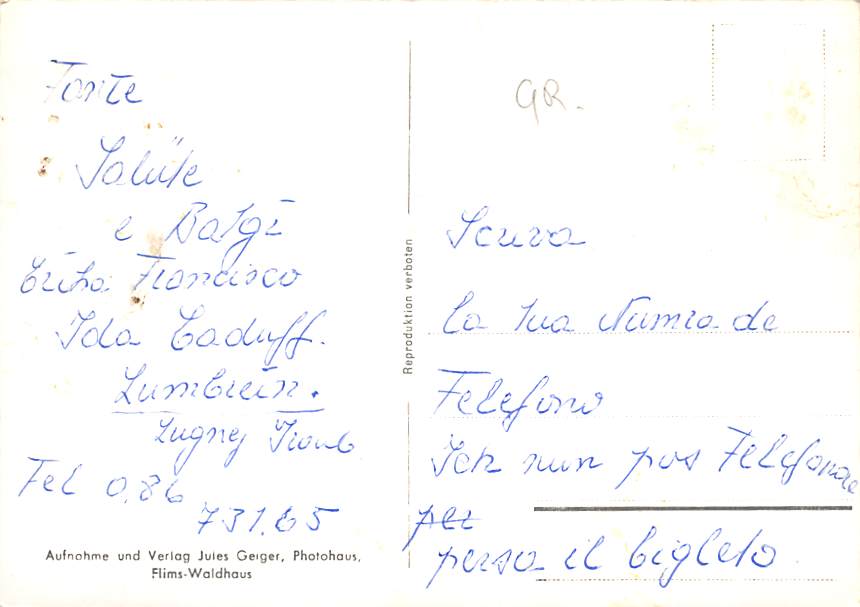 Fante
Salüte
e Batgi
Erika Francisco
Ida Caduff.
Lumbrein.
Tel 0.86
731.65
Aufnahme und Verlag Jules Geiger, Photohaus,
Flims-Waldhaus
Reproduktion verboten
GR.
Scuva
la tua Numra de
Felefono
Ich nun pos Felefonae
per
persa il bigleto